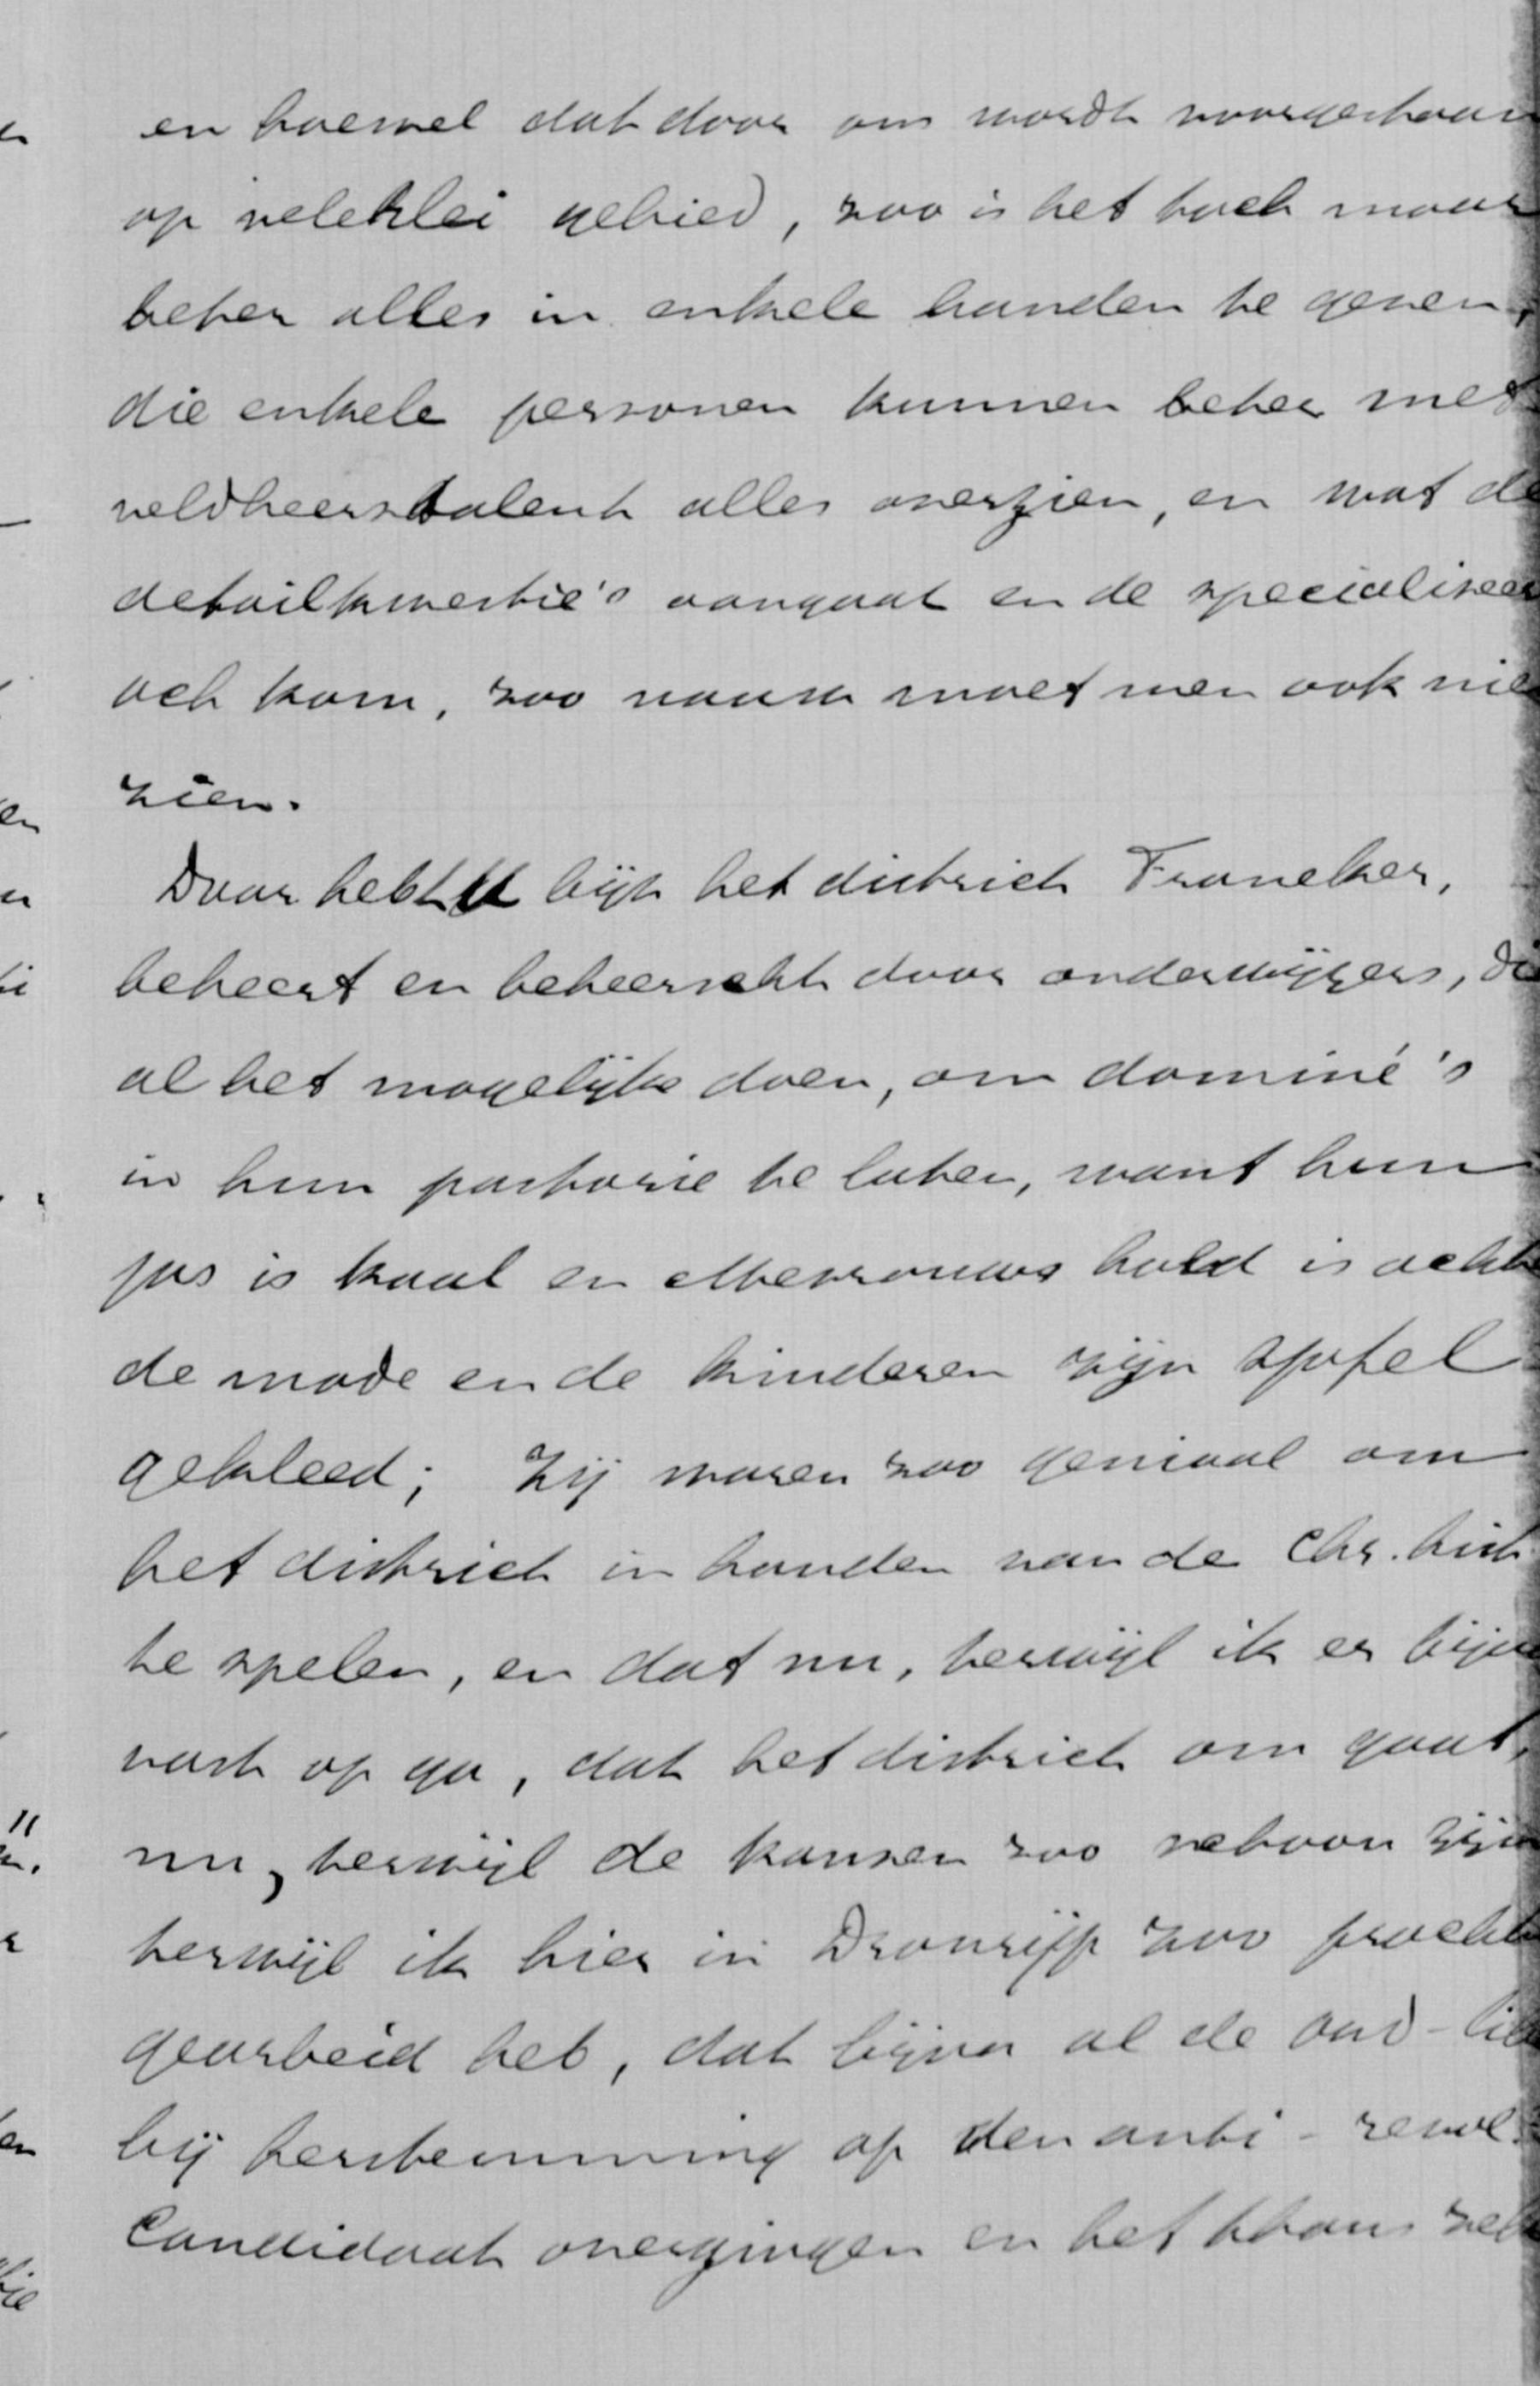 en hoewel dat door ons wordt voorgestaan
op velerlei gebied, zoo is het toch maar
beter alles in enkele handen te geven,
die enkele personen kunnen beter met
veldheerstalent alles overzien, en wat de
detailkwestie's aangaat en de specialiseer
och kom, zoo nauw moet men ook nie
zien.
Daar hebt U bijv het district Franeker,
beheert en beheerscht door onderwijzers, die
al het mogelijke doen, om dominé's
in hun pastorie te laten, want hun
jas is kaal en Mevrouws hoed is achter
de mode en de kinderen zijn sjofel
gekleed; Zij waren zoo geniaal om
het district in handen van de Chr. hist
te spelen, en dat nu, terwijl ik er bijna
vast op ga, dat het district om gaat,
nu, terwijl de kansen zoo schoon zijn
terwijl ik hier in Dronrijp zoo prachti
gearbeid heb, dat bijna al de oud-lib
bij herstemming op den anti-revol.
Candidaat overgingen en het thans zelf